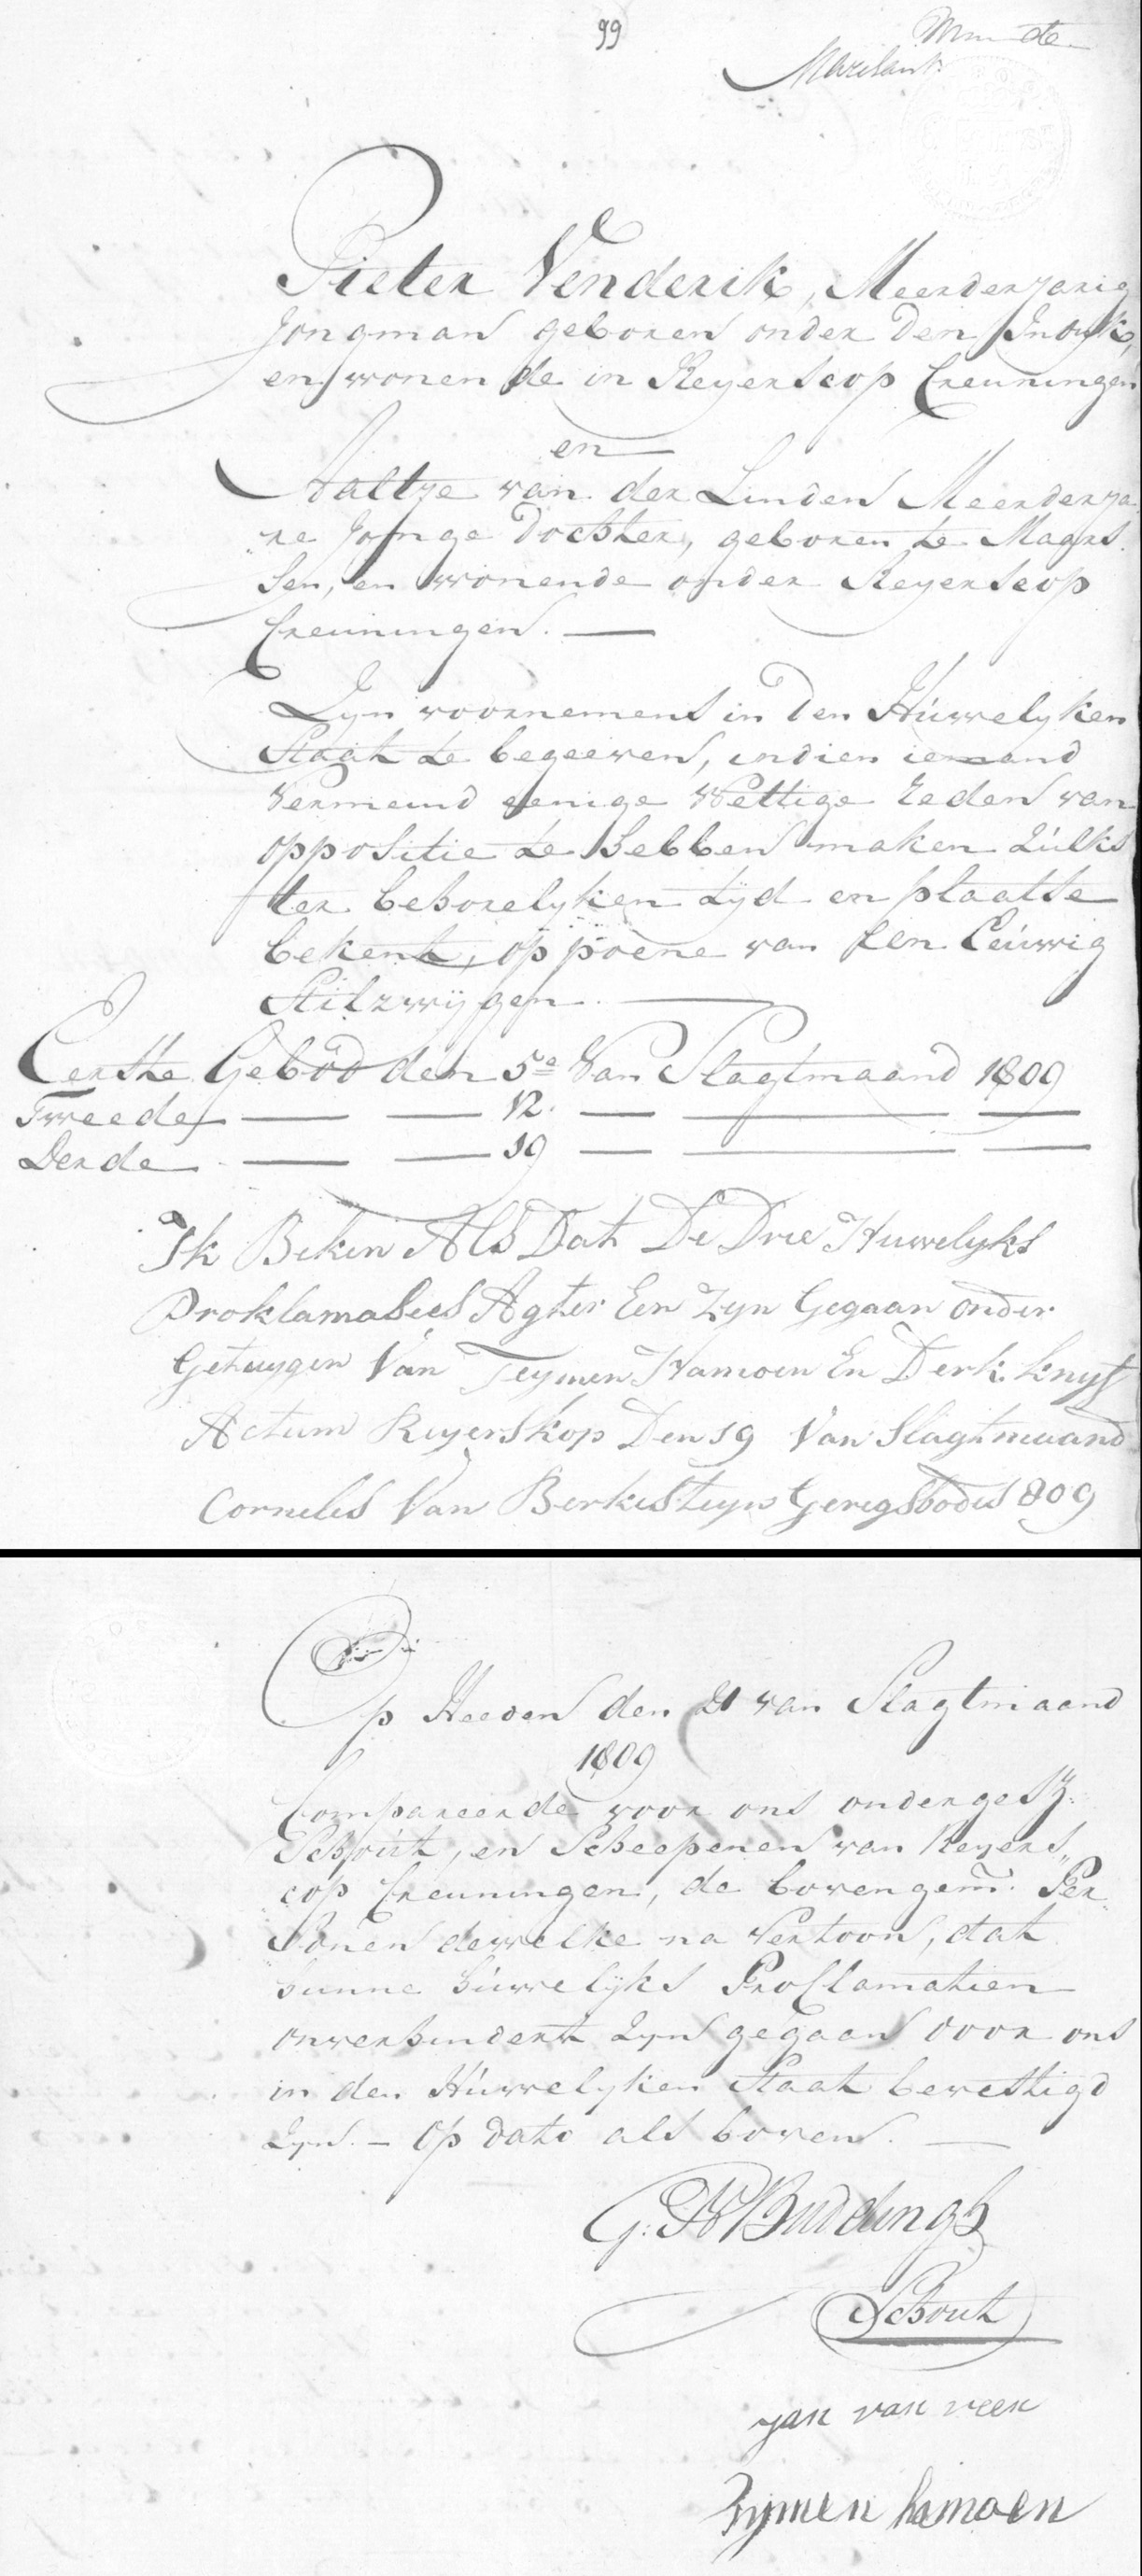 99
Pieter Venderik, Meerderjarig
Jongman geboren onder den Indyk,
en wonende in Reyerscop Creuningen
en
Aaltje van der Linden Meerderja
re Jonge Dochter, geboren te Maars
sen, en wonende onder Reyerscop
Creuningen.
Zyn voornemens in den Húwelyken
Staat te begeeven, indien iemand
vermeind eenige Wettige reden van
oppositie te hebben maken zúlks
ter behorelyken tijd en plaatse
bekent, op poene van een Eeúwig
Stilzwijgen.
Eerste Gebod den 5e Van Slagtmaand 1809
Tweede — — 12. — — —
Derde — — 19 — — —
Ik Beken Als Dat De Drie Huwelyks
Proklamasies Agter Een Zyn Gegaan onder
Getuygen Van Teymen Hamoen En Derk Knyf
Actum Reyerskop Den 19 Van Slagtmaand
Cornelis Van Berkesteyn Geregsbode 1809
Op Heeden den 21 van Slagtmaand
1809
Compareerde voor ons ondergesz:
Schoút, en Scheepenen van Reyers„
„cop Creuningen, de bovengem: Per„
„sonen dewelke na Vertoon, dat
hunne húwelyks Proclamatien
onverhindert zyn gegaan door ons
in den Húwelyken Staat bevestigd
zyn. — Op dato als boven.
G: H Buddingh
Schout
jan van veen
Tijmen hamoen